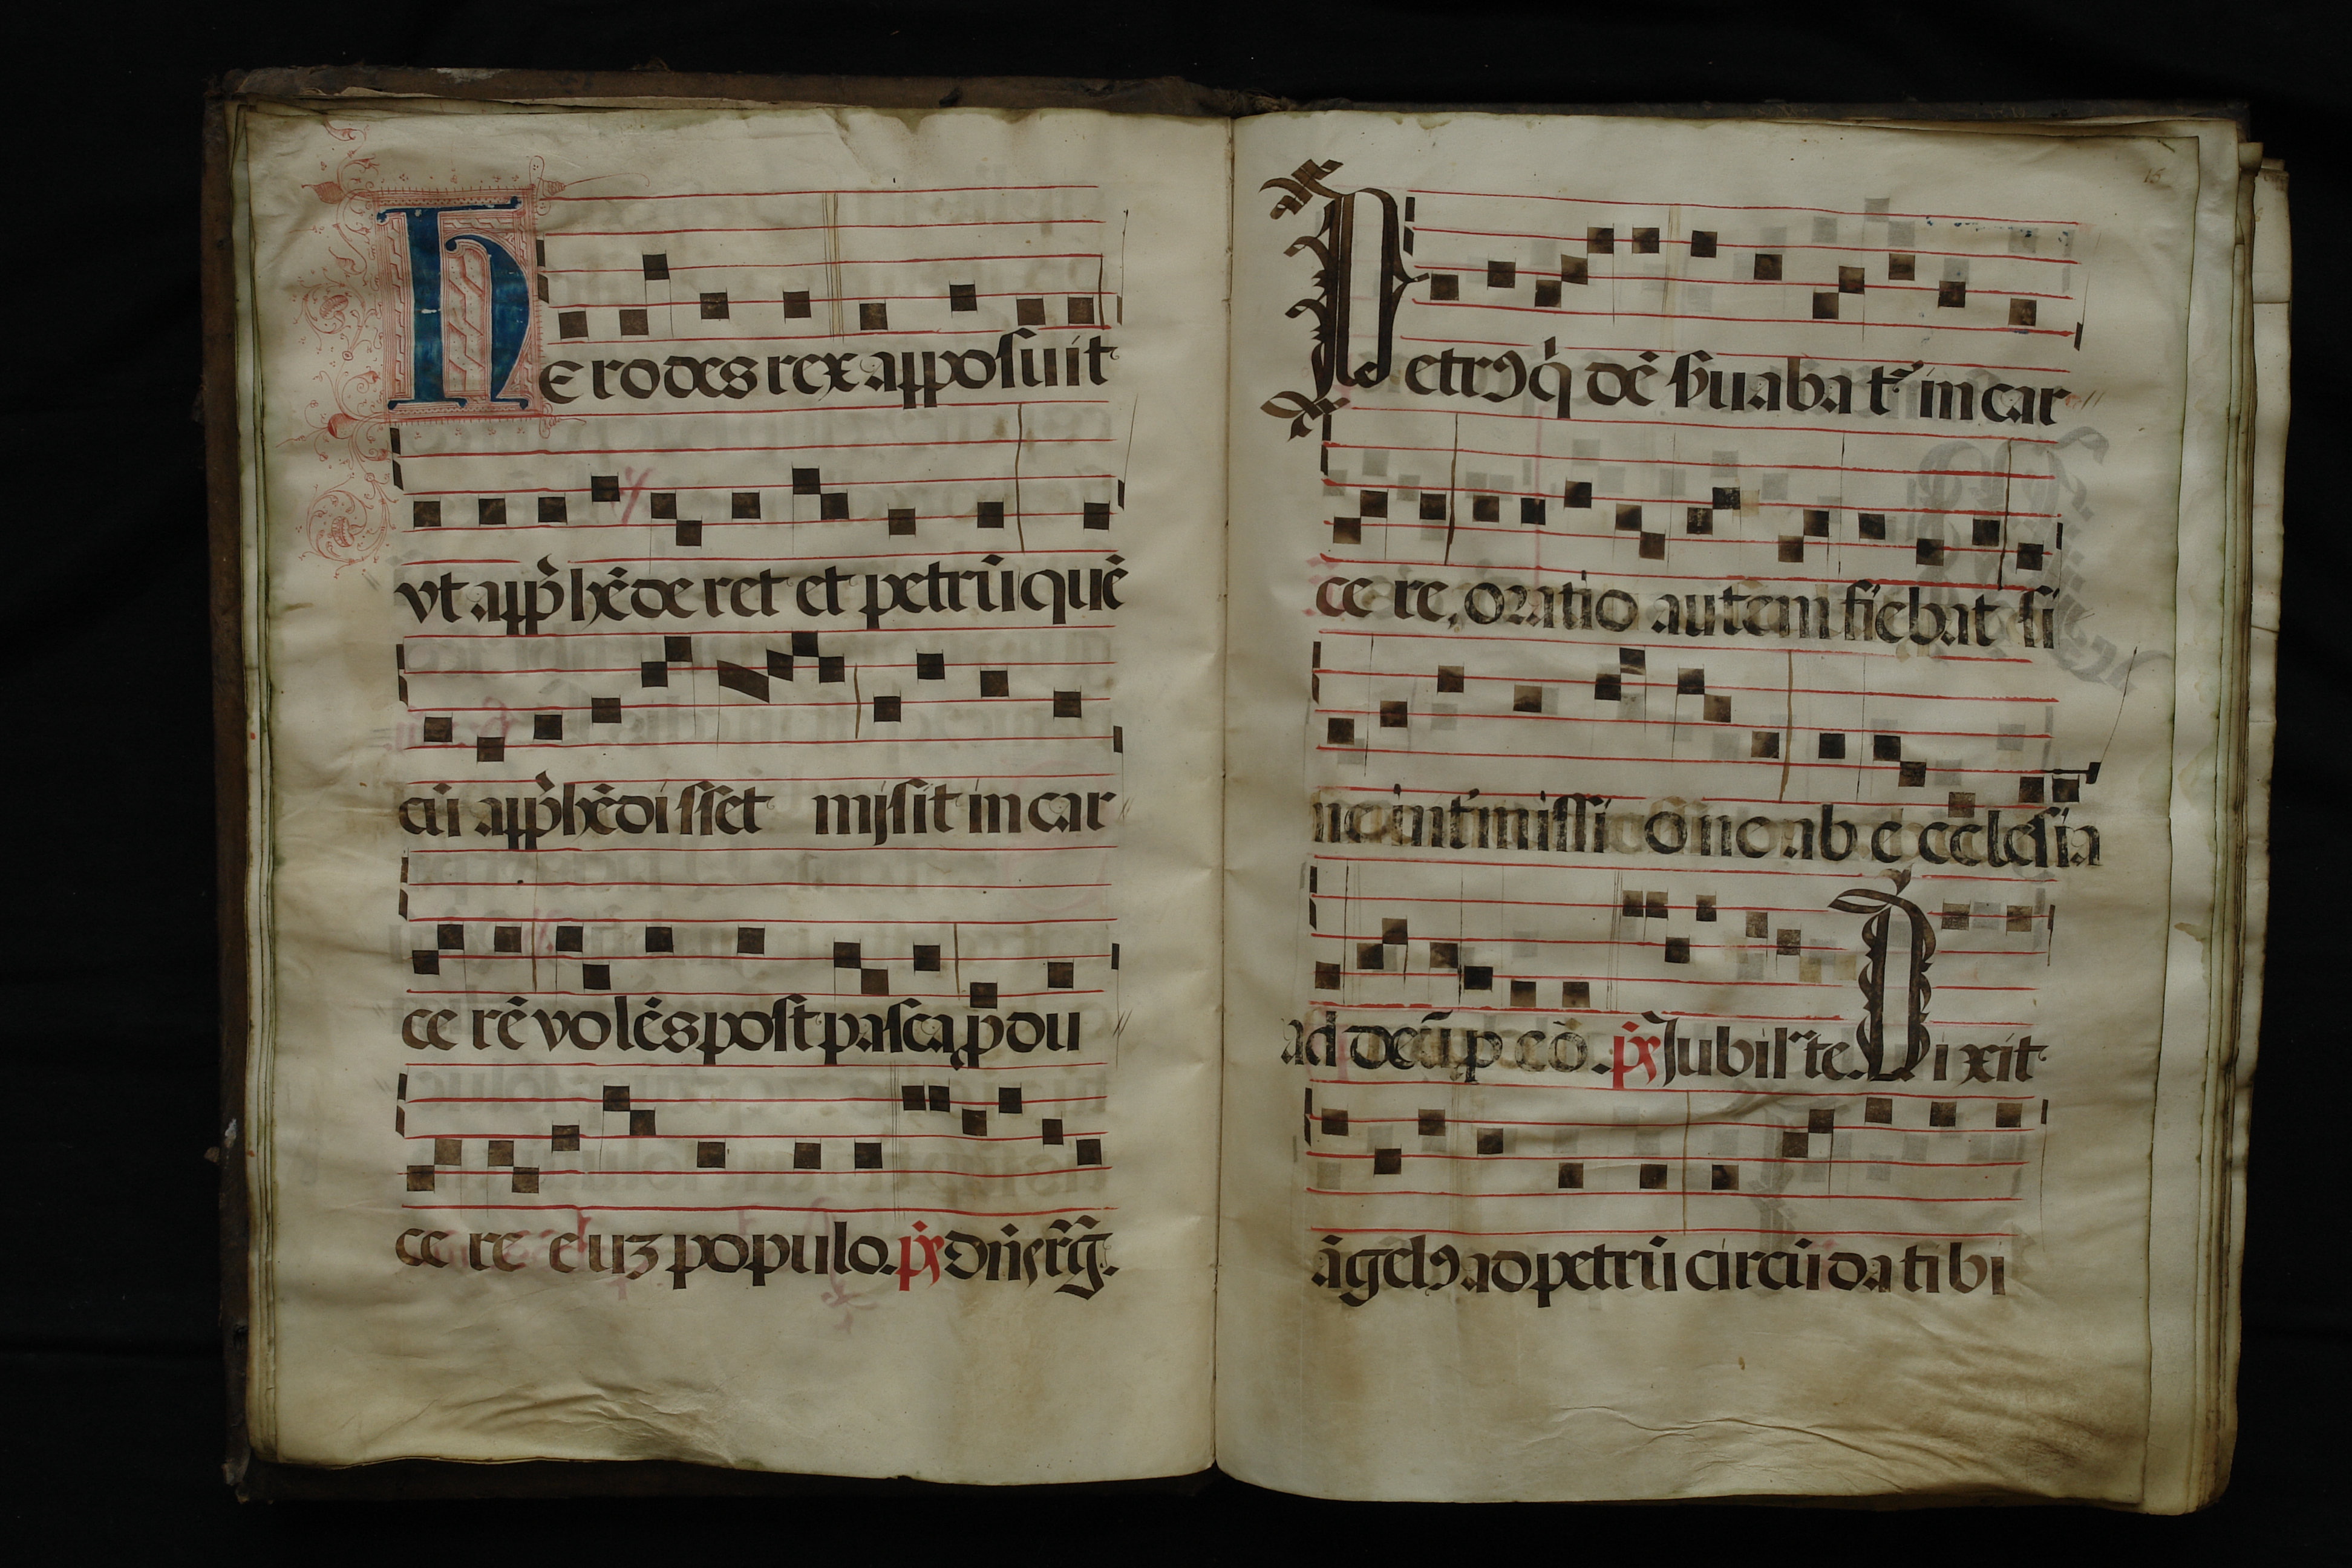 Herodes rex apposuit
vt app̃hẽderet et petrũ quẽ
cũ app̃hẽdisset misit in car
cerẽ volẽs post pasca ꝓdu
cere euʒ populo. p̃s Dñi est r̃g̃.
15
Petrꝯ q̃dẽ s̃uabat᷑ in car
cere, oratio autem fiebat si
ne int̃missione ab ecclesia
ad deũ p eo. p̃s Jubilate. Dixit
ãgelꝯ ad petrũ circũda tibi